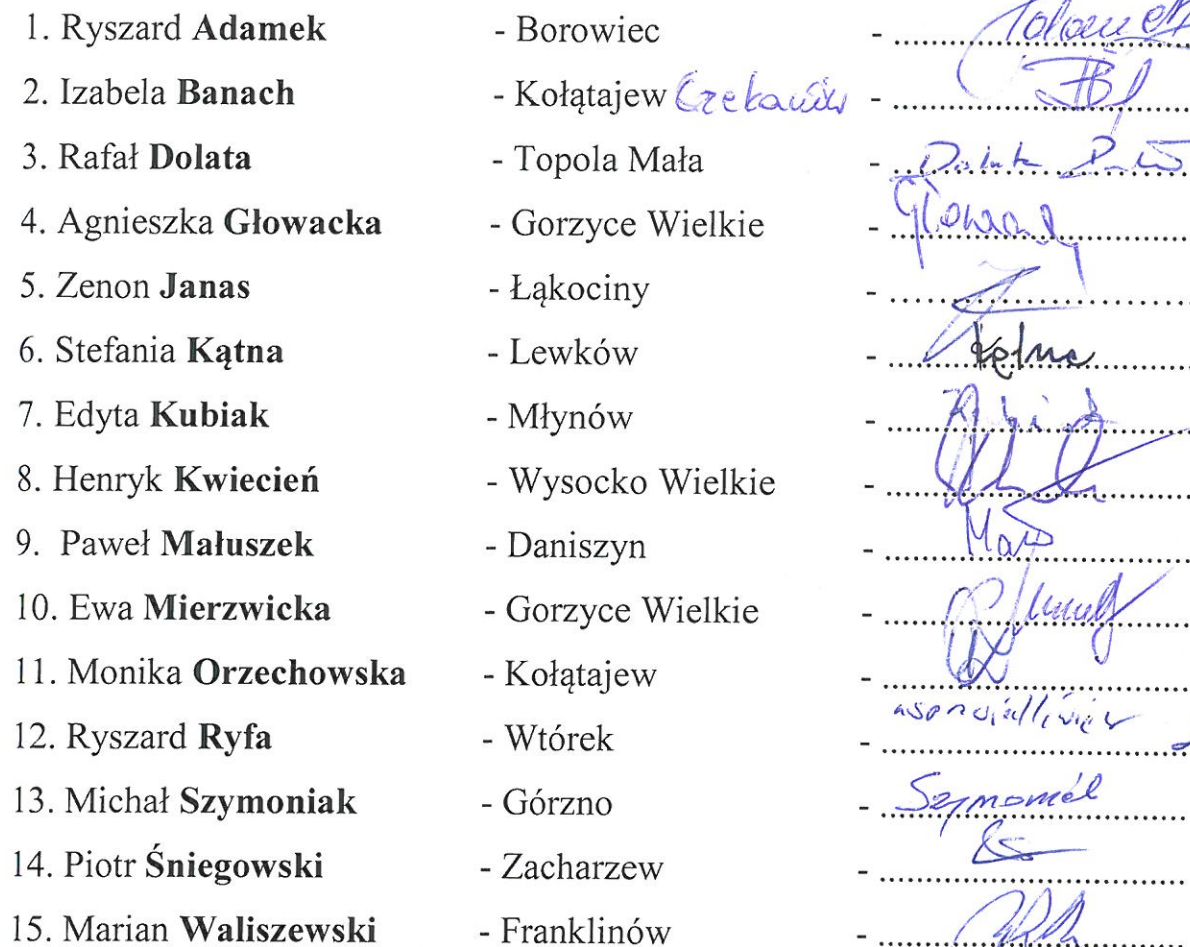 1. Ryszard Adamek - Borowiec - ....................
2. Izabela Banach - Kołątajew Czekanów - ....................
3. Rafał Dolata - Topola Mała - ....................
4. Agnieszka Głowacka - Gorzyce Wielkie - ....................
5. Zenon Janas - Łąkociny - ....................
6. Stefania Kątna - Lewków - Kątna
7. Edyta Kubiak - Młynów - ....................
8. Henryk Kwiecień - Wysocko Wielkie - ....................
9. Paweł Małuszek - Daniszyn - ....................
10. Ewa Mierzwicka - Gorzyce Wielkie - ....................
11. Monika Orzechowska - Kołątajew - ....................
12. Ryszard Ryfa - Wtórek - ....................
13. Michał Szymoniak - Górzno - ....................
14. Piotr Śniegowski - Zacharzew - ....................
15. Marian Waliszewski - Franklinów - ....................